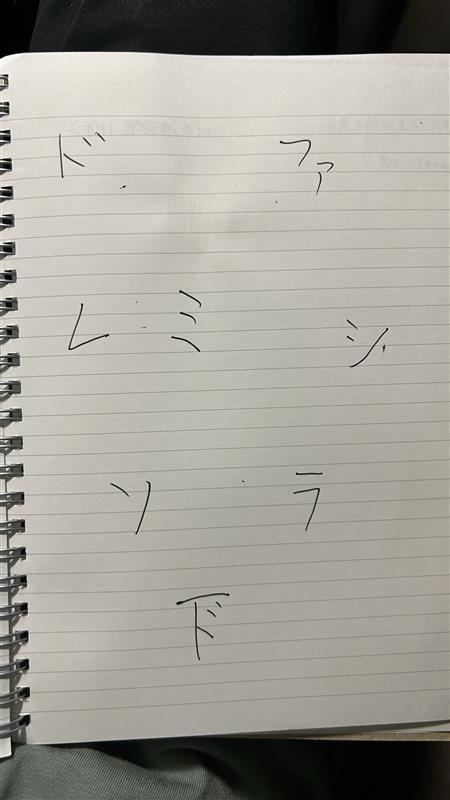 ド ファ
レ ミ シ
ソ ラ
ド